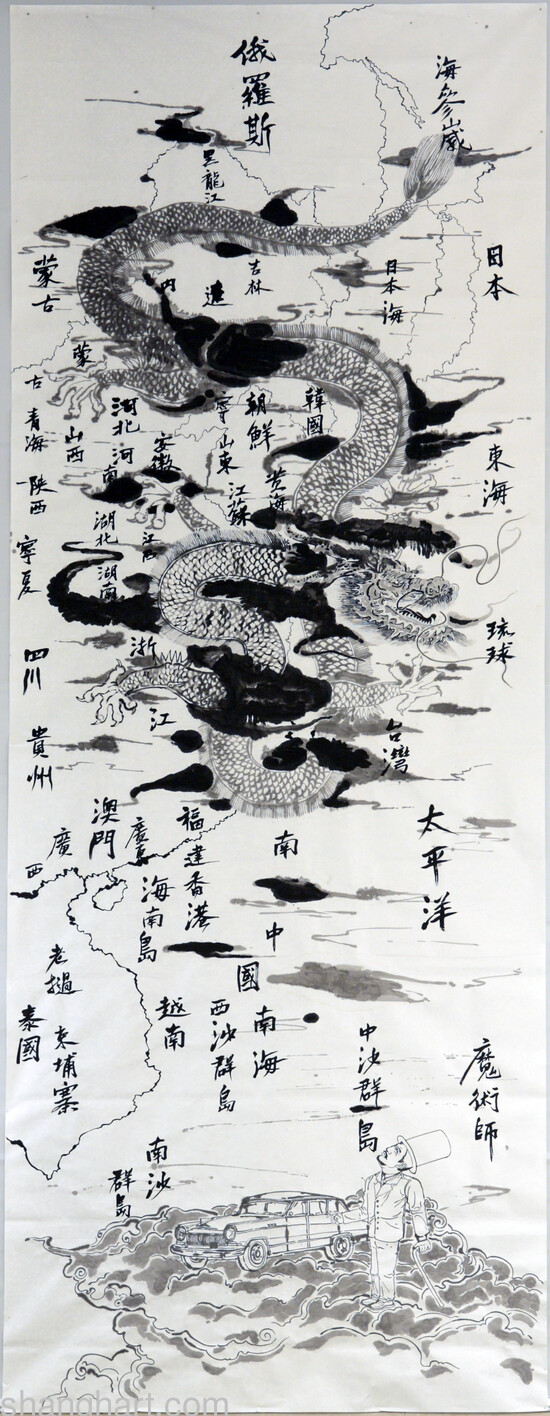 俄羅斯
海參崴
黑龍江
日本
吉林
日本海
内
遼
蒙古
蒙
古
寧
朝鮮
韓國
河北
河南
安徽
山西
青海
山東
江蘇
黃海
東海
陝西
湖北
湖南
江西
寧夏
琉球
四川
浙
江
貴州
台灣
太平洋
澳門
廣
西
海南島
福建
香港
南
中
國
南海
老撾
越南
西沙群島
中沙群島
泰國
柬埔寨
魔術師
南沙
群島
shanghart.com